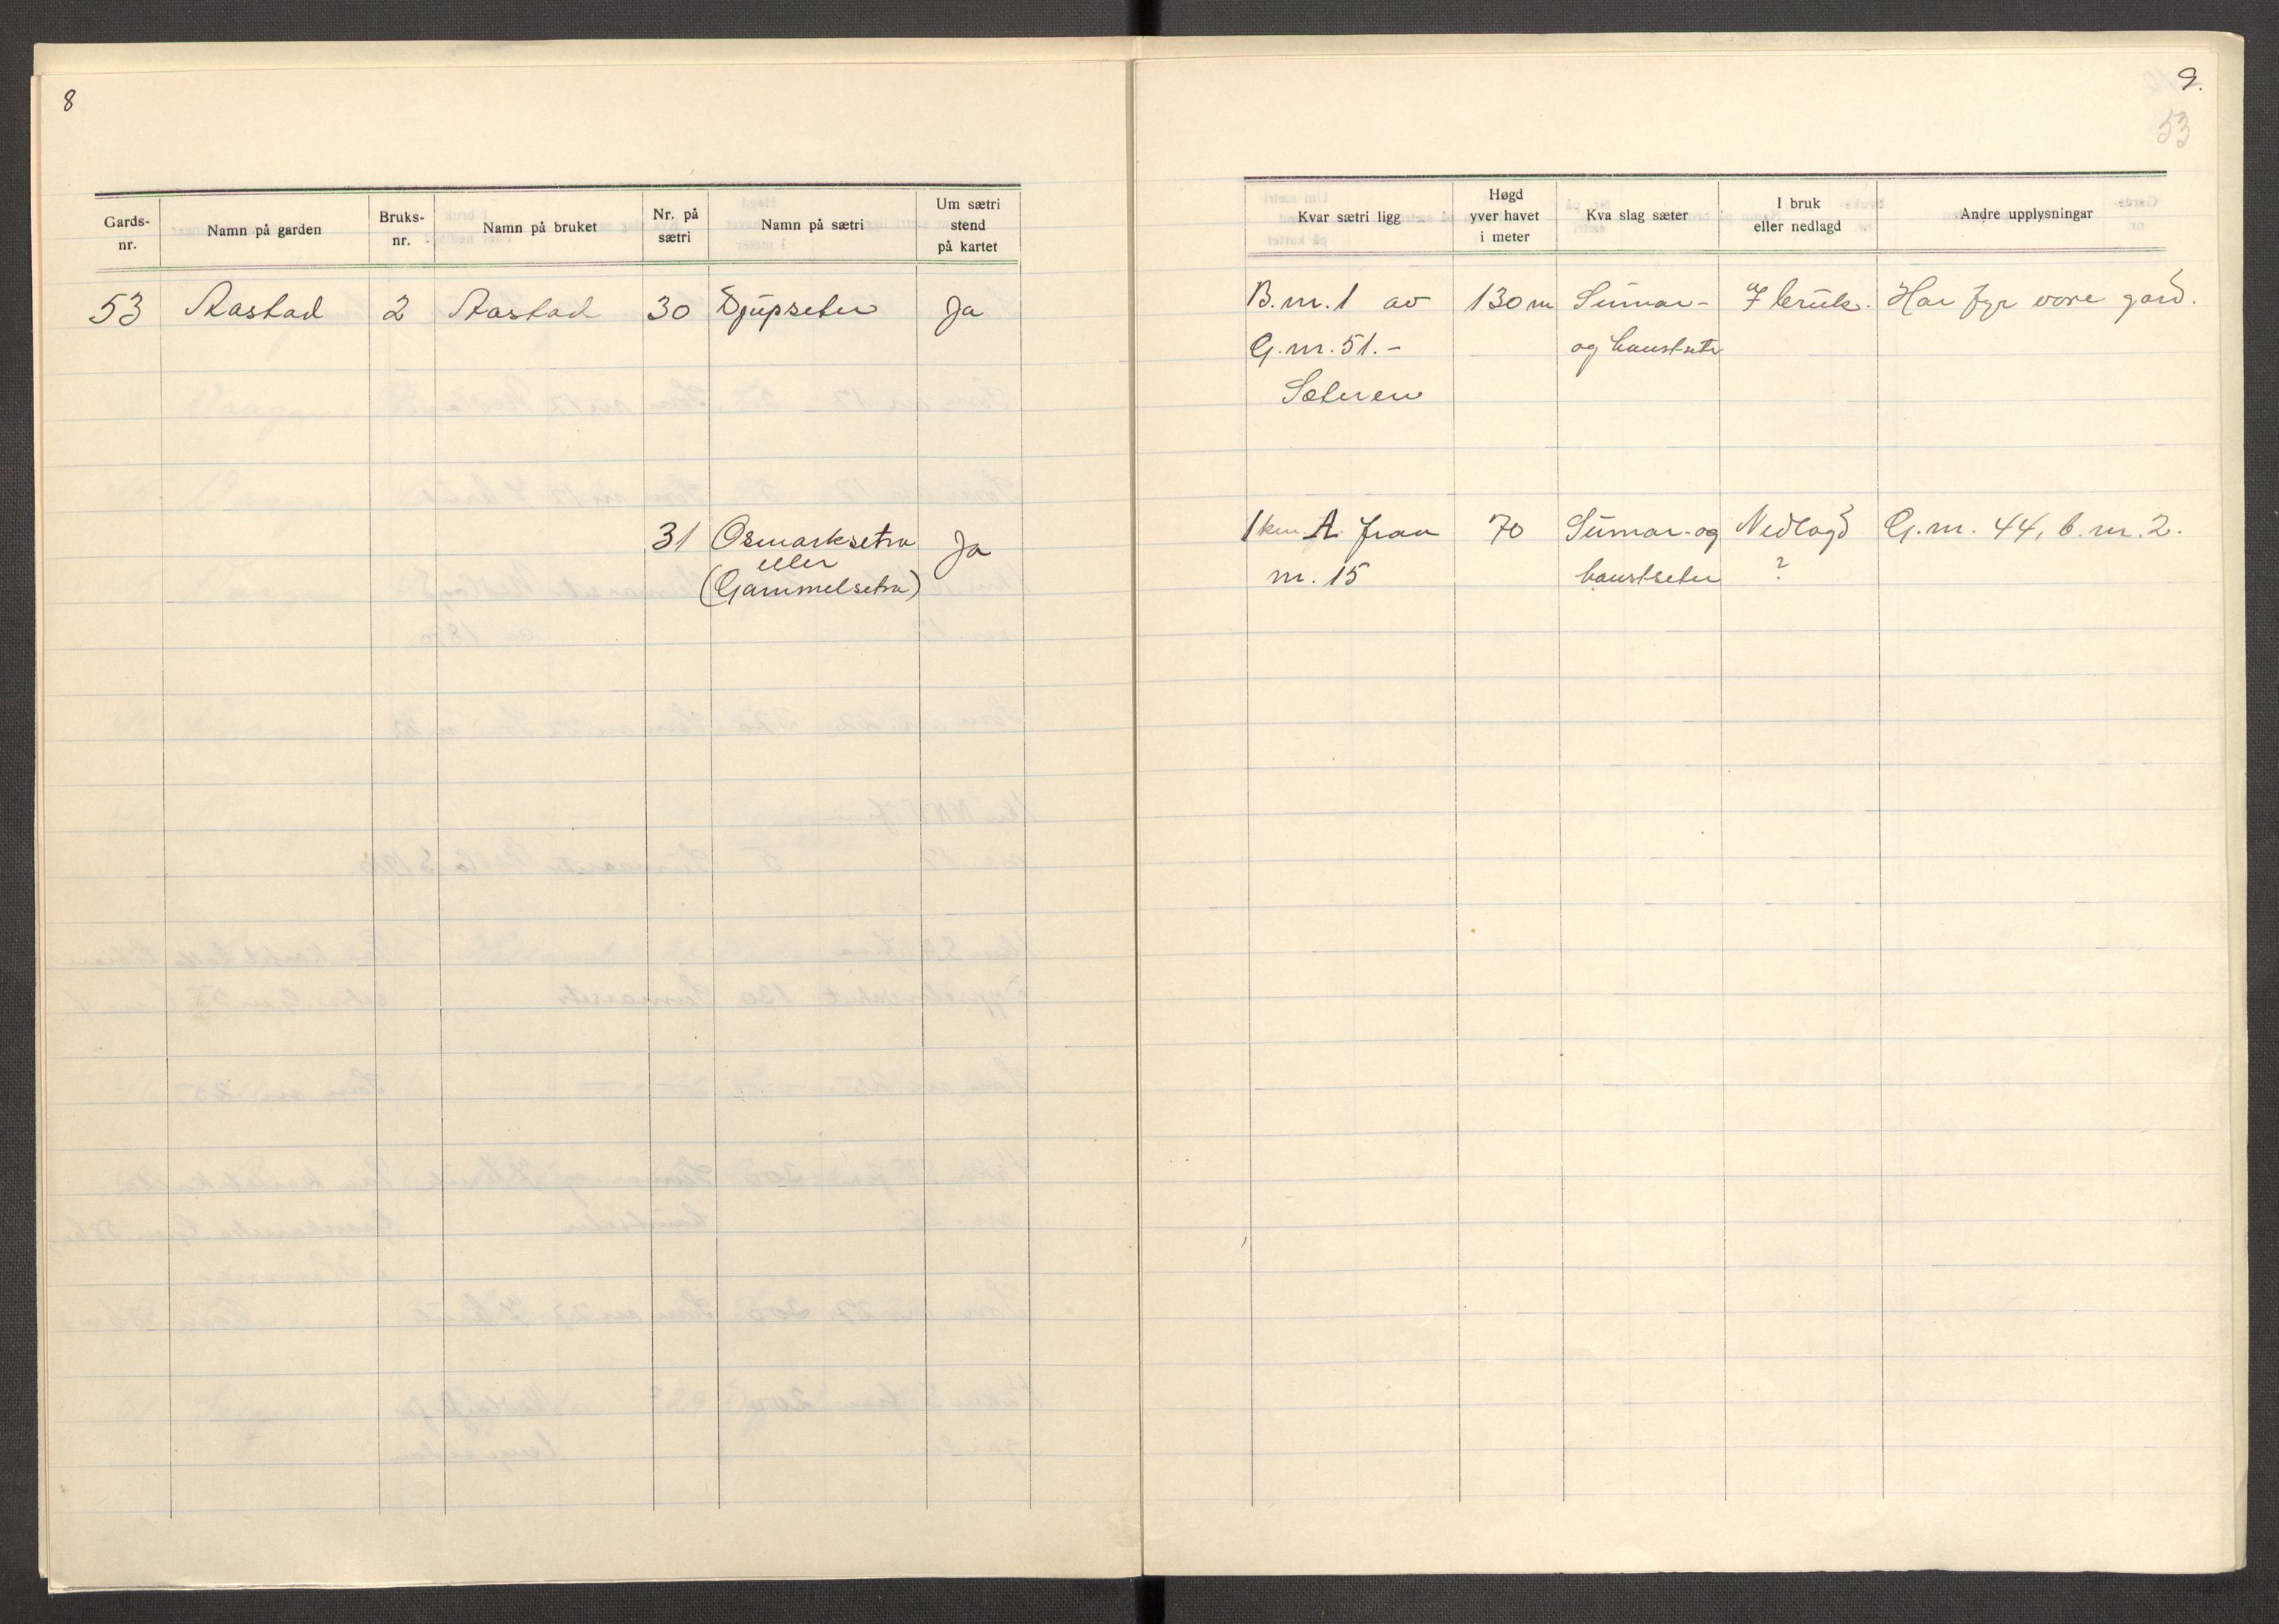 8
Gards-
nr.
Namn på garden
Bruks-
nr.
Namn på bruket
Nr. på
sætri
Namn på sætri
Um sætri
stend
på kartet
53 Aastad 2 Aastad 30 Djupseter Ja
31 Osmarksetra Ja
eller
(Gammelsetra)
9.
53
Kvar sætri ligg
Høgd
yver havet
i meter
Kva slag sæter
I bruk
eller nedlagd
Andre upplysningar
B.nr. 1 av 130 m Sumar- I bruk. Har fyr vore gard.
G.nr. 51.- og haustseter
Seteren
1 km A. fraa 70 Sumar- og Nedlagd G.nr. 44, b.nr. 2.
nr. 15 haustseter ?